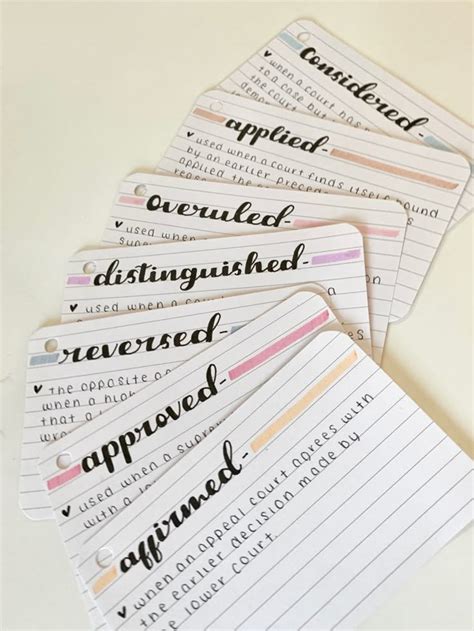 considered-
♥ when a court has
to a case but
the court
applied-
♥ used when a court finds itself bound
by an earlier
applied the
overuled-
♥ used when
distinguished-
♥ used when a court
reversed-
♥ the opposite
when a
that a
approved-
♥ used when a
with a
affirmed-
♥ when an appeal court agrees with
the earlier decision made by
the lower court.